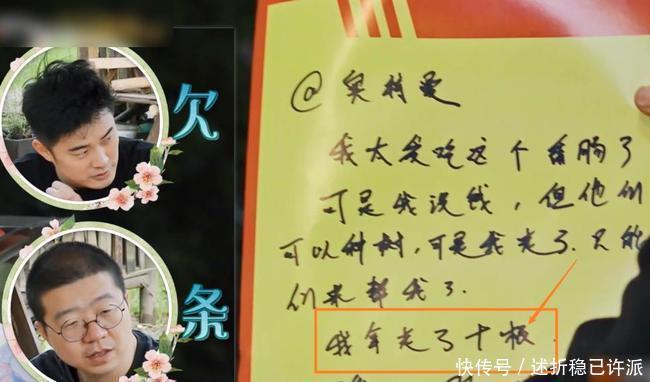 欠
条
@奥特曼
我太爱吃这个香肠了
可是我没钱，但他们
可以种树，可是我走了.只能
们来帮我了.
我拿走了十板.
快传号／述折稳已许派